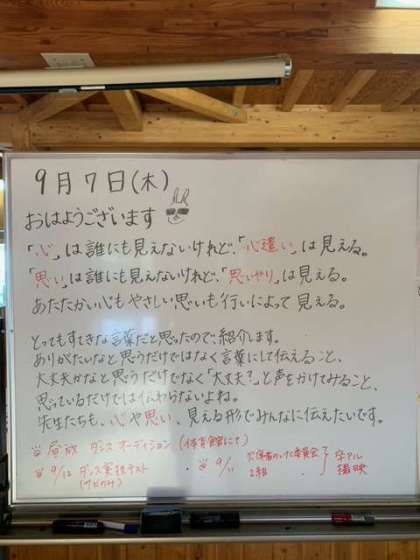 9月7日(木)
おはようございます
「心」は誰にも見えないけれど、「心遣い」は見える。
「思い」は誰にも見えないけれど、「思いやり」は見える。
あたたかい心もやさしい思いも行いによって見える。
とってもすてきな言葉だと思ったので紹介します。
ありがたいなと思うだけではなく言葉にして伝えること、
大丈夫かなと思うだけでなく「大丈夫?」と声をかけてみること、
思っているだけでは伝わらないよね。
先生たちも、心や思い、見える形でみんなに伝えたいです。
ダンスオーディション(体育館にて)
9/12 ダンス実技テスト
(サビのみ)
9/11
委員会
2組
卒アル
撮影